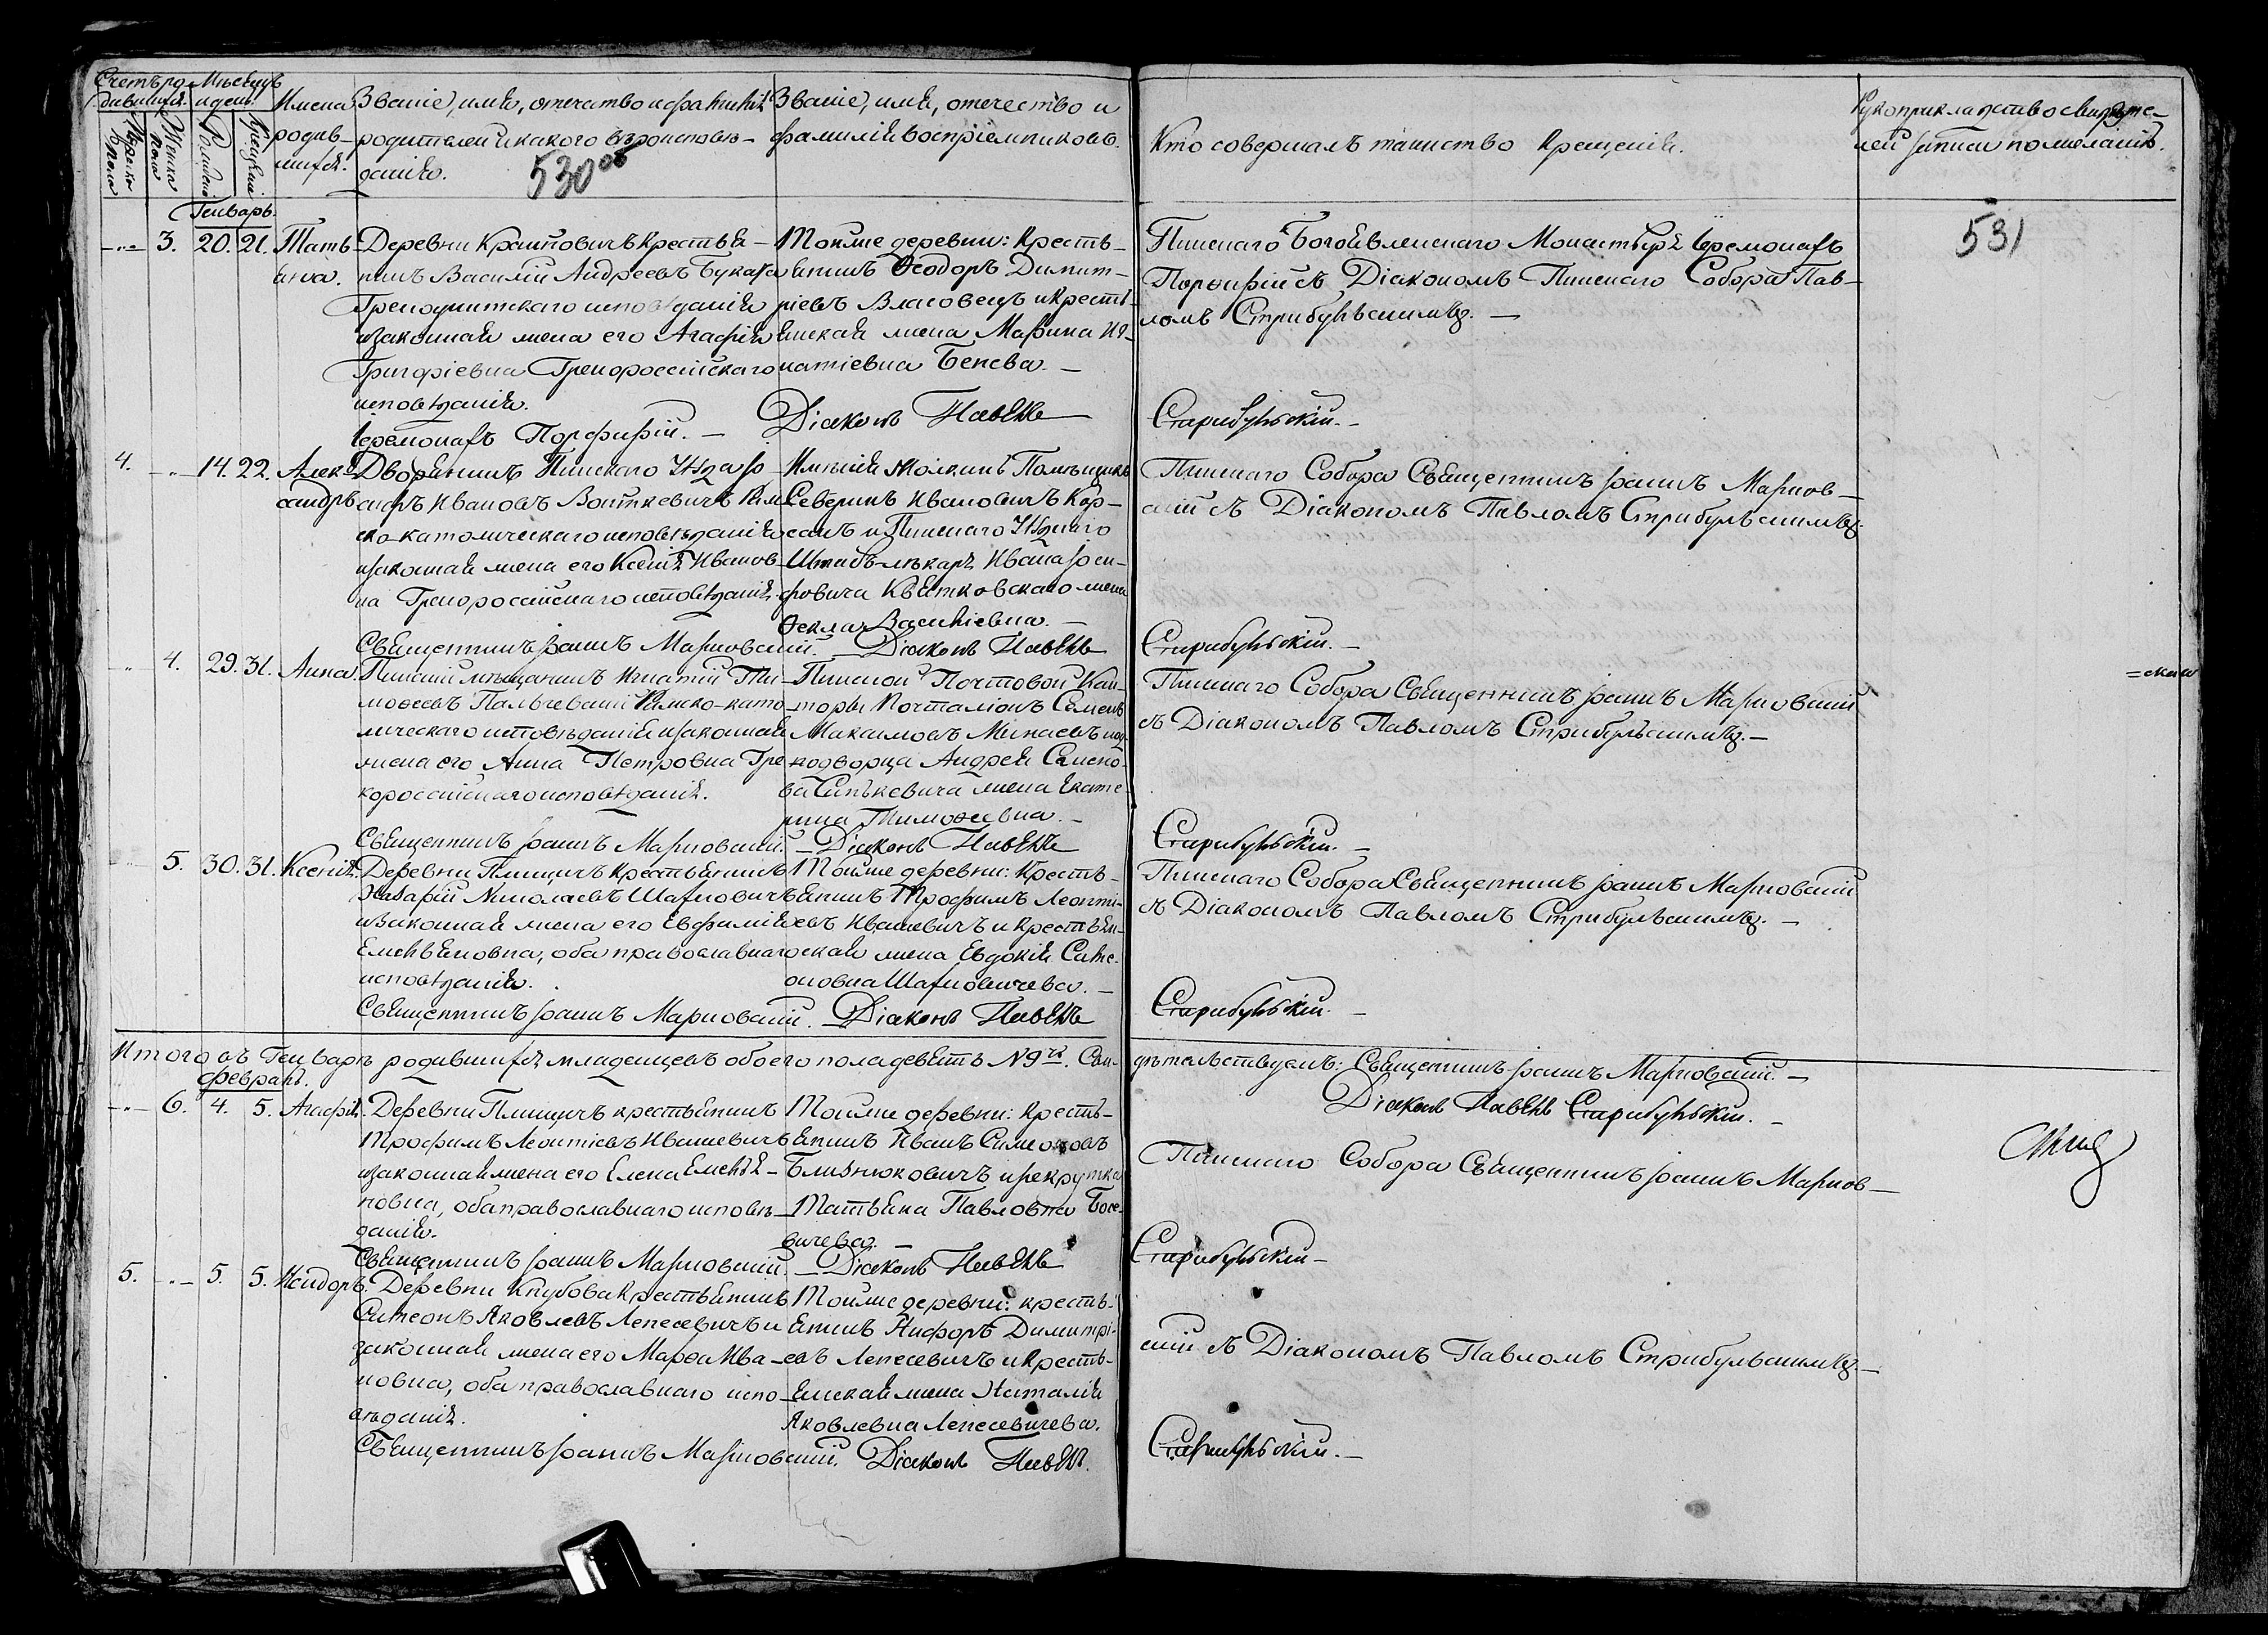 Счетъ ро-
дившихся.
Мѣсяцъ
и день.
Мужеска
пола
Женска
пола
Рожденія
Крещенія
Имена
родив-
шихся.
Званіе, имя, отечество и фамилія
родителей и какого вѣроисповѣ-
данія.
530 об
Званіе, имя, отечество и
фамилія воспріемниковъ.
Кто совершалъ таинство крещенія.
Рукоприкладство свидѣте-
лей записи по желанію.
531
Генварь.
3. 20. 21.
Тать-
яна.
Деревни Крайновичъ крестья-
нинъ Василій Андреевъ Буката
Грекоунитскаго исповѣданія
и законная жена его Агафія
Григоріевна Грекороссійскаго
исповѣданія.
Іеромонахъ Порфирій.
Тойже деревни: Кресть-
янинъ Ѳеодоръ Димит-
ріевъ Власовецъ и кресть-
янская жена Марина Иг-
натіевна Бенева.
Діаконъ Павелъ
Пинскаго Богоявленскаго Монастыря Іеромонахъ
Порфирій съ Діакономъ Пинскаго Собора Пав-
ломъ Стрибульскимъ.
Стрибульскій.
4. 14. 22.
Алек-
сандръ
Дворянинъ Пинскаго Уѣзда
Ивановъ Войткевичъ Рим
ско-католическаго исповѣданія
и законная жена его Ксенія Иванов-
на Грекороссійскаго исповѣданія.
Священникъ Іоаннъ Марновскій.
Имѣнія Молкинъ Помѣщикъ
Северинъ Ивановичъ Кор-
сакъ и Пинскаго Уѣзднаго
Штабъ-лѣкаря Ивана Іоси-
фовича Квятковскаго жена
Ѳекла Васильевна.
Діаконъ Павелъ
Пинскаго Собора Священникъ Іоаннъ Марнов-
скій съ Діакономъ Павломъ Стрибульскимъ.
Стрибульскій.
4. 29. 31.
Анна.
Пинскій мѣщанинъ Игнатій Ти-
моѳеевъ Пальчевскій Римско-като-
лическаго исповѣданія и законная
жена его Анна Петровна Гре-
короссійскаго исповѣданія.
Священникъ Іоаннъ Марновскій.
Пинской Почтовой Кан-
торы Почталіонъ Семенъ
Максимовъ Минаевъ и од-
нодворца Андрея Семено-
ва Синкевича жена Екате-
рина Тимоѳеевна.
Діаконъ Павелъ
Пинскаго Собора Священникъ Іоаннъ Марновскій
съ Діакономъ Павломъ Стрибульскимъ.
Стрибульскій.
5. 30. 31.
Ксенія.
Деревни Плещицъ Крестьянинъ
Назарій Николаевъ Шарновичъ
и Законная жена его Евфимія
Емельяновна, оба православнаго
исповѣданія.
Священникъ Іоаннъ Марновскій.
Тойже деревни: Кресть-
янинъ Трофимъ Леонті-
евъ Ивашевичъ и крестьян-
ская жена Евдокія Симе-
оновна Шарновичева.
Діаконъ Павелъ
Пинскаго Собора Священникъ Іоаннъ Марновскій
съ Діакономъ Павломъ Стрибульскимъ.
Стрибульскій.
Итого въ Генварѣ родившихся младенцевъ обоего пола девять N 9ть. Сви-
дѣтельствуемъ: Священникъ Іоаннъ Марновскій.
Діаконъ Павелъ Стрибульскій.
Февраль.
6. 4. 5.
Агафія.
Деревни Плещицъ крестьянинъ
Трофимъ Леонтіевъ Ивашевичъ
и законная жена его Елена Емелья-
новна, оба православнаго исповѣ-
данія.
Священникъ Іоаннъ Марновскій.
Тойже деревни: Кресть-
янинъ Иванъ Симеоновъ
Близнюковичъ и рекрутка
Татьяна Павловна Босе-
вичева.
Діаконъ Павелъ
Пинскаго Собора Священникъ Іоаннъ Марнов-
Стрибульскій
5. 5. 5.
Исидоръ.
Деревни Кнубова Крестьянинъ
Симеонъ Яковлевъ Лепесевичъ и
законная жена его Марѳа Ива-
новна, оба православнаго испо-
вѣданія.
Священникъ Іоаннъ Марновскій.
Тойже деревни: кресть-
янинъ Никфоръ Димитрі-
евъ Лепесевичъ и кресть-
янская жена Наталія
Яковлевна Лепесевичева.
Діаконъ Павелъ.
скій съ Діакономъ Павломъ Стрибульскимъ.
Стрибульскій.